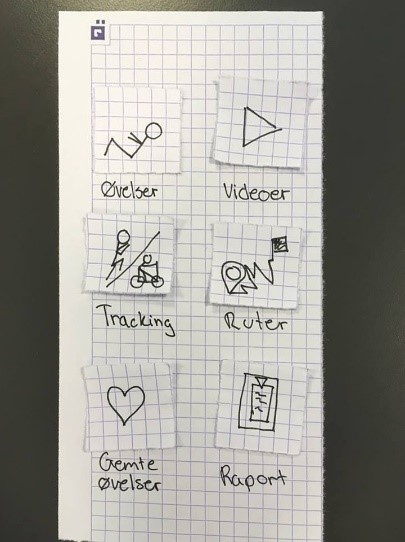 Øvelser
Videoer
Tracking
Ruter
Gemte
øvelser
Raport